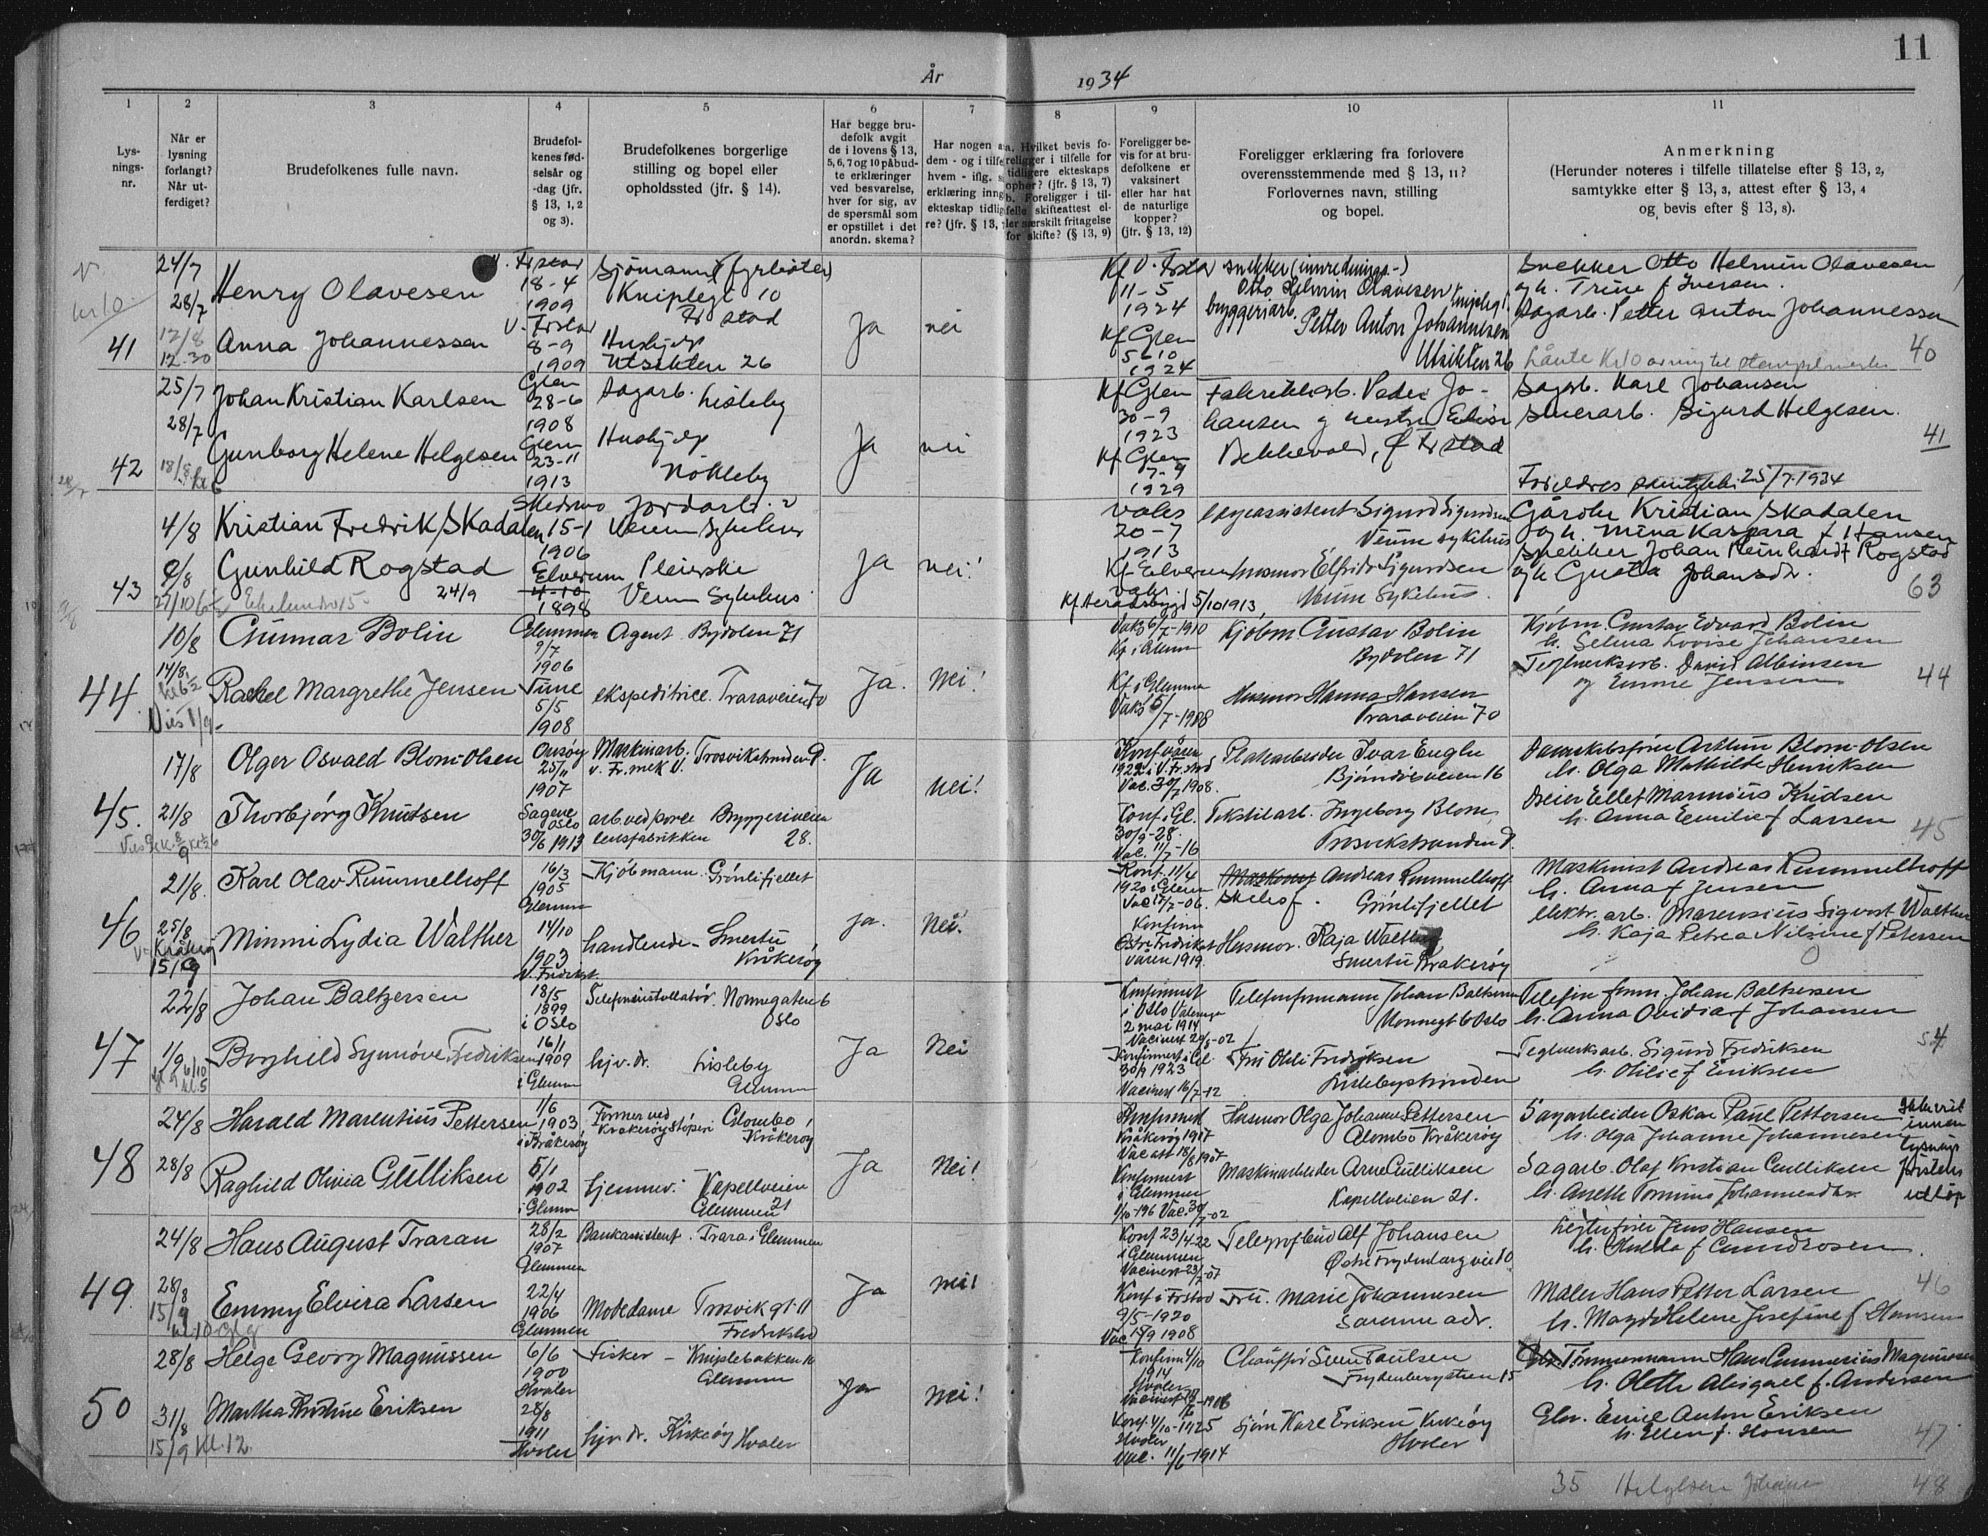 11
År 1934
1 2 3 4 5 6 7 8 9 10 11
Lysningsnr.
Når er lysning forlangt? Når utferdiget?
Brudefolkenes fulle navn.
Brudefolkenes fødselsår og -dag (jfr. § 13, 1, 2 og 3).
Brudefolkenes borgerlige stilling og bopel eller opholdssted (jfr. § 14).
Har begge brudefolk avgit de i lovens § 13, 5, 6, 7 og 10 påbudte erklæringer ved besvarelse, hver for sig, av de spørsmål som er opstillet i det anordn. skema?
Har nogen a
dem - og i tilfe
hvem - iflg. s
erklæring inng
ekteskap tidlig
re? (jfr. § 13,
a. Hvilket bevis foreligger i tilfelle for tidligere ekteskaps opher? (jfr. § 13, 7)
b. Foreligger i tilfelle skifteattest eller særskilt fritagelse for skifte? (§ 13, 9)
Foreligger bevis for at brudefolkene er vaksinert eller har hat de naturlige kopper? (jfr. § 13, 12)
Foreligger erklæring fra forlovere overensstemmende med § 13, 11? Forlovernes navn, stilling og bopel.
Anmerkning
(Herunder noteres i tilfelle tillatelse efter § 13, 2, samtykke efter § 13, 3, attest efter § 13, 4 og bevis efter § 13, 8).
41
24/7
28/7
12/8
12.30
Henry Olavesen
V. Frstad
18-4
1909
Sjømann (fyrbøter)
Kniplegt 10
Fr stad
Anna Johannessen
V. Frstad
8-9
1909
Hushjelp
Utsikten 26
Ja
nei
Kf V. Frstad
11-5
1924
Kf Glem
5-10
1924
snekker (innrednings-)
Otto Helmin Olavesen Kniplegt
bryggeriarb. Petter Anton Johannesen
Utsikten 26
Snekker Otto Helmin Olavesen
og h. Trine f Iversen.
Sagarb. Petter Anton Johannessen
40
42
25/7
28/7
18/8
Johan Kristian Karlsen
Glem
28-6
1908
Sagarb. Lisleby
Gunborg Helene Helgesen
Glem
23-11
1913
Hushjelp
Nøkleby
Ja
nei
Kf Glem
30-9
1923
Kf Glem
7-9
1929
Fabrikkarb. Peder Johansen
Bekkevold, Ø Frstad
Sagb. Karl Johansen
Smerarb. Sigurd Helgesen.
Foreldres samtykke 25/7-1934
41
43
4/8
8/8
Kristian Fredrik Skadalen
15-1
1906
Jordarb.
Veum Sykehus
Gunhild Rogstad
24/9
Elverum
4-10
1898
Pleierske
Veum Sykehus
Ja
nei!
20-7
1913
Kf Elverum
Kf. Heradsbygd 5/10 1913
Lægeassistent Sigurd Sigurdsen
Veum sykehus
Husmor Elfrida Sigurdsen
Veum Sykehus.
Gårdbr. Kristian Skadalen
og h. Mina Kaspara f Hansen
snekker Johan Reinhardt Rogstad
og h Gusta Johansdr.
63
44
10/8
14/8
Vies 1/9-
Gunnar Bolin
Glemmen
9/7
1906
Agent Bydalen 71
Rachel Margrethe Jensen
Tune
5/5
1908
ekspeditrice. Traraveien 70
Ja.
Nei!
Vaks 6/7-1910
Kf i Glemm
Kf. i Glemm
Kjøbm Gustav Bolin
Bydalen 71
Husmor Hanna Hansen
Traraveien 70
Kjøbm. Gustav Edvard Bolin
h. Selma Lovise Johansen
Teglverksarb. David Albinsen
og Emma Jensen
44
45.
17/8
21/8
Olger Osvald Blom-Olsen
Onsøy
25/11
1907
Maskinarb. Trosvikstranden 9.
v. Fr. mek V.
Thorbjørg Knutsen
Sagene
Oslo
30/6 1913
arb. ved porcelensfabrikken Bryggeriveien
28.
Ja
nei!
Konf våren
1922 i V. Fr. stad
Konf. i Gl.
30/9-28.
Vac. 11/7-16
Platearbeider Ivar Engh
Bjørndisveien 16
Tekstilarb. Ingeborg Blom
Trosvikstranden 9.
Arthur Blom-Olsen
h. Olga Mathilde Henriksen
Ellef Marinius Knudsen
h. Anna Emilie f Larsen
45
46
21/8.
25/8
Kråkerøy
15/9
Karl Olav Rummelhoff
16/3
1905
Glemm
Kjøbmann. Grønlifjellet
Minmi Lydia Walther
14/10
1903
V. Fredrikst.
handlende - Smertu,
Kråkerøy
Ja.
Nei.
Konf. 11/4
1920 i Glem
Konfirm
Østre Fredrikst
våren 1919.
Andreas Rummelhoff
Grønlifjellet
Husmor. Kaja Walther
Smertu Kråkerøy
Maskinist Andreas Rummelhoff
h. Anna f Jensen
elektr. arb. Marensius Sigvart Walther
h. Kaja Petrea Nilsine f Petersen
47
22/8
1/9
Johan Baltzersen
18/5
1899
i Oslo
Telefoninstallatør. Nonnegaten 6
Oslo
Borghild Synnøve Fredriksen
16/1
1909
i Glemm
hjv. dr. Lisleby
Glemm
Ja
Nei
Konfirmert
i Oslo Vålerenga
2 mai 1914
Konfirmert i Gl.
30/9 1923
Vacinert 16/7-12
Telefonformann Johan Baltzersen
Nonnegt 6 Oslo
Fru Othilie Fredriksen
Lislebystranden
Telefon form. Johan Baltzersen
h. Anna Ovidia f Johansen
Teglverksarb. Sigurd Fredriksen
h. Otilie f Eriksen
54
48
24/8
28/8
Harald Marentius Pettersen
1/6
1903
i Kråkerøy
Former ved
Kråkerøy støperi Glombo,
Kråkerøy
Raghild Olivia Gulliksen
5/1
1902
i Glemm
hjemmev. Kapellveien
Glemmen 21
Ja
Nei!
Konfirmert
Kråkerøy 1917
Vac att 18/8 1907
Konfirmert
i Glemmen
Husmor Olga Johanne Pettersen
Glombo Kråkerøy
Maskinarbeider Arne Gulliksen
Kapellveien 21.
Sagarbeider Oskar Paul Pettersen
h. Olga Johanne Johannesen
Sagarb. Olaf Kristian Gulliksen
Ikke viet
innen
lysnings
fristens
utløp
49
24/8
28/8
15/9
Hans August Traran
28/2
1907
Glemmen
Bankassistent. Trara i Glemmen
Emmy Elvira Larsen
22/4
1906
Glemmen
Motedame Trosvik gt. 11
Fredrikstad
Ja
nei!
Konf 23/4-22
i Glemmen
Vacinert 23/7-07
Konf i Frstad
9/5-1920
Vac 14/9 1908
Telegrafbud Alf Johansen
Østre Frydenbergvei 10
Frk. Marie Johannesen
Samme adr.
Jens Hansen
h. Hulda f Gundrosen.
Maler Hans Petter Larsen
h. Magda Helene Josefine f Hansen
46
50
28/8
31/8
15/9 kl. 12.
Helge Georg Magnussen
6/6
1900
Hvaler
Fisker - Kniplebakken 16
Glemm
Martha Kristine Eriksen
28/8
1911
Hvaler
hjv. dr. Kirkøy Hvaler
Ja
Nei!
Konfirm 4/10
1914
Hvaler
Konf. 4/10-1925
Hvaler
Vac. 11/6-1914
Chauffør Sven Paulsen
Frydenbergstien 15
Karl Eriksen Kirkøy
Hvaler
Tømmermann Hans Gunnerius Magnussen
h. Olette Abigael f. Andersen
Emil Anton Eriksen
h. Ellen f. Hansen
47
35 Helgesen Johan
48